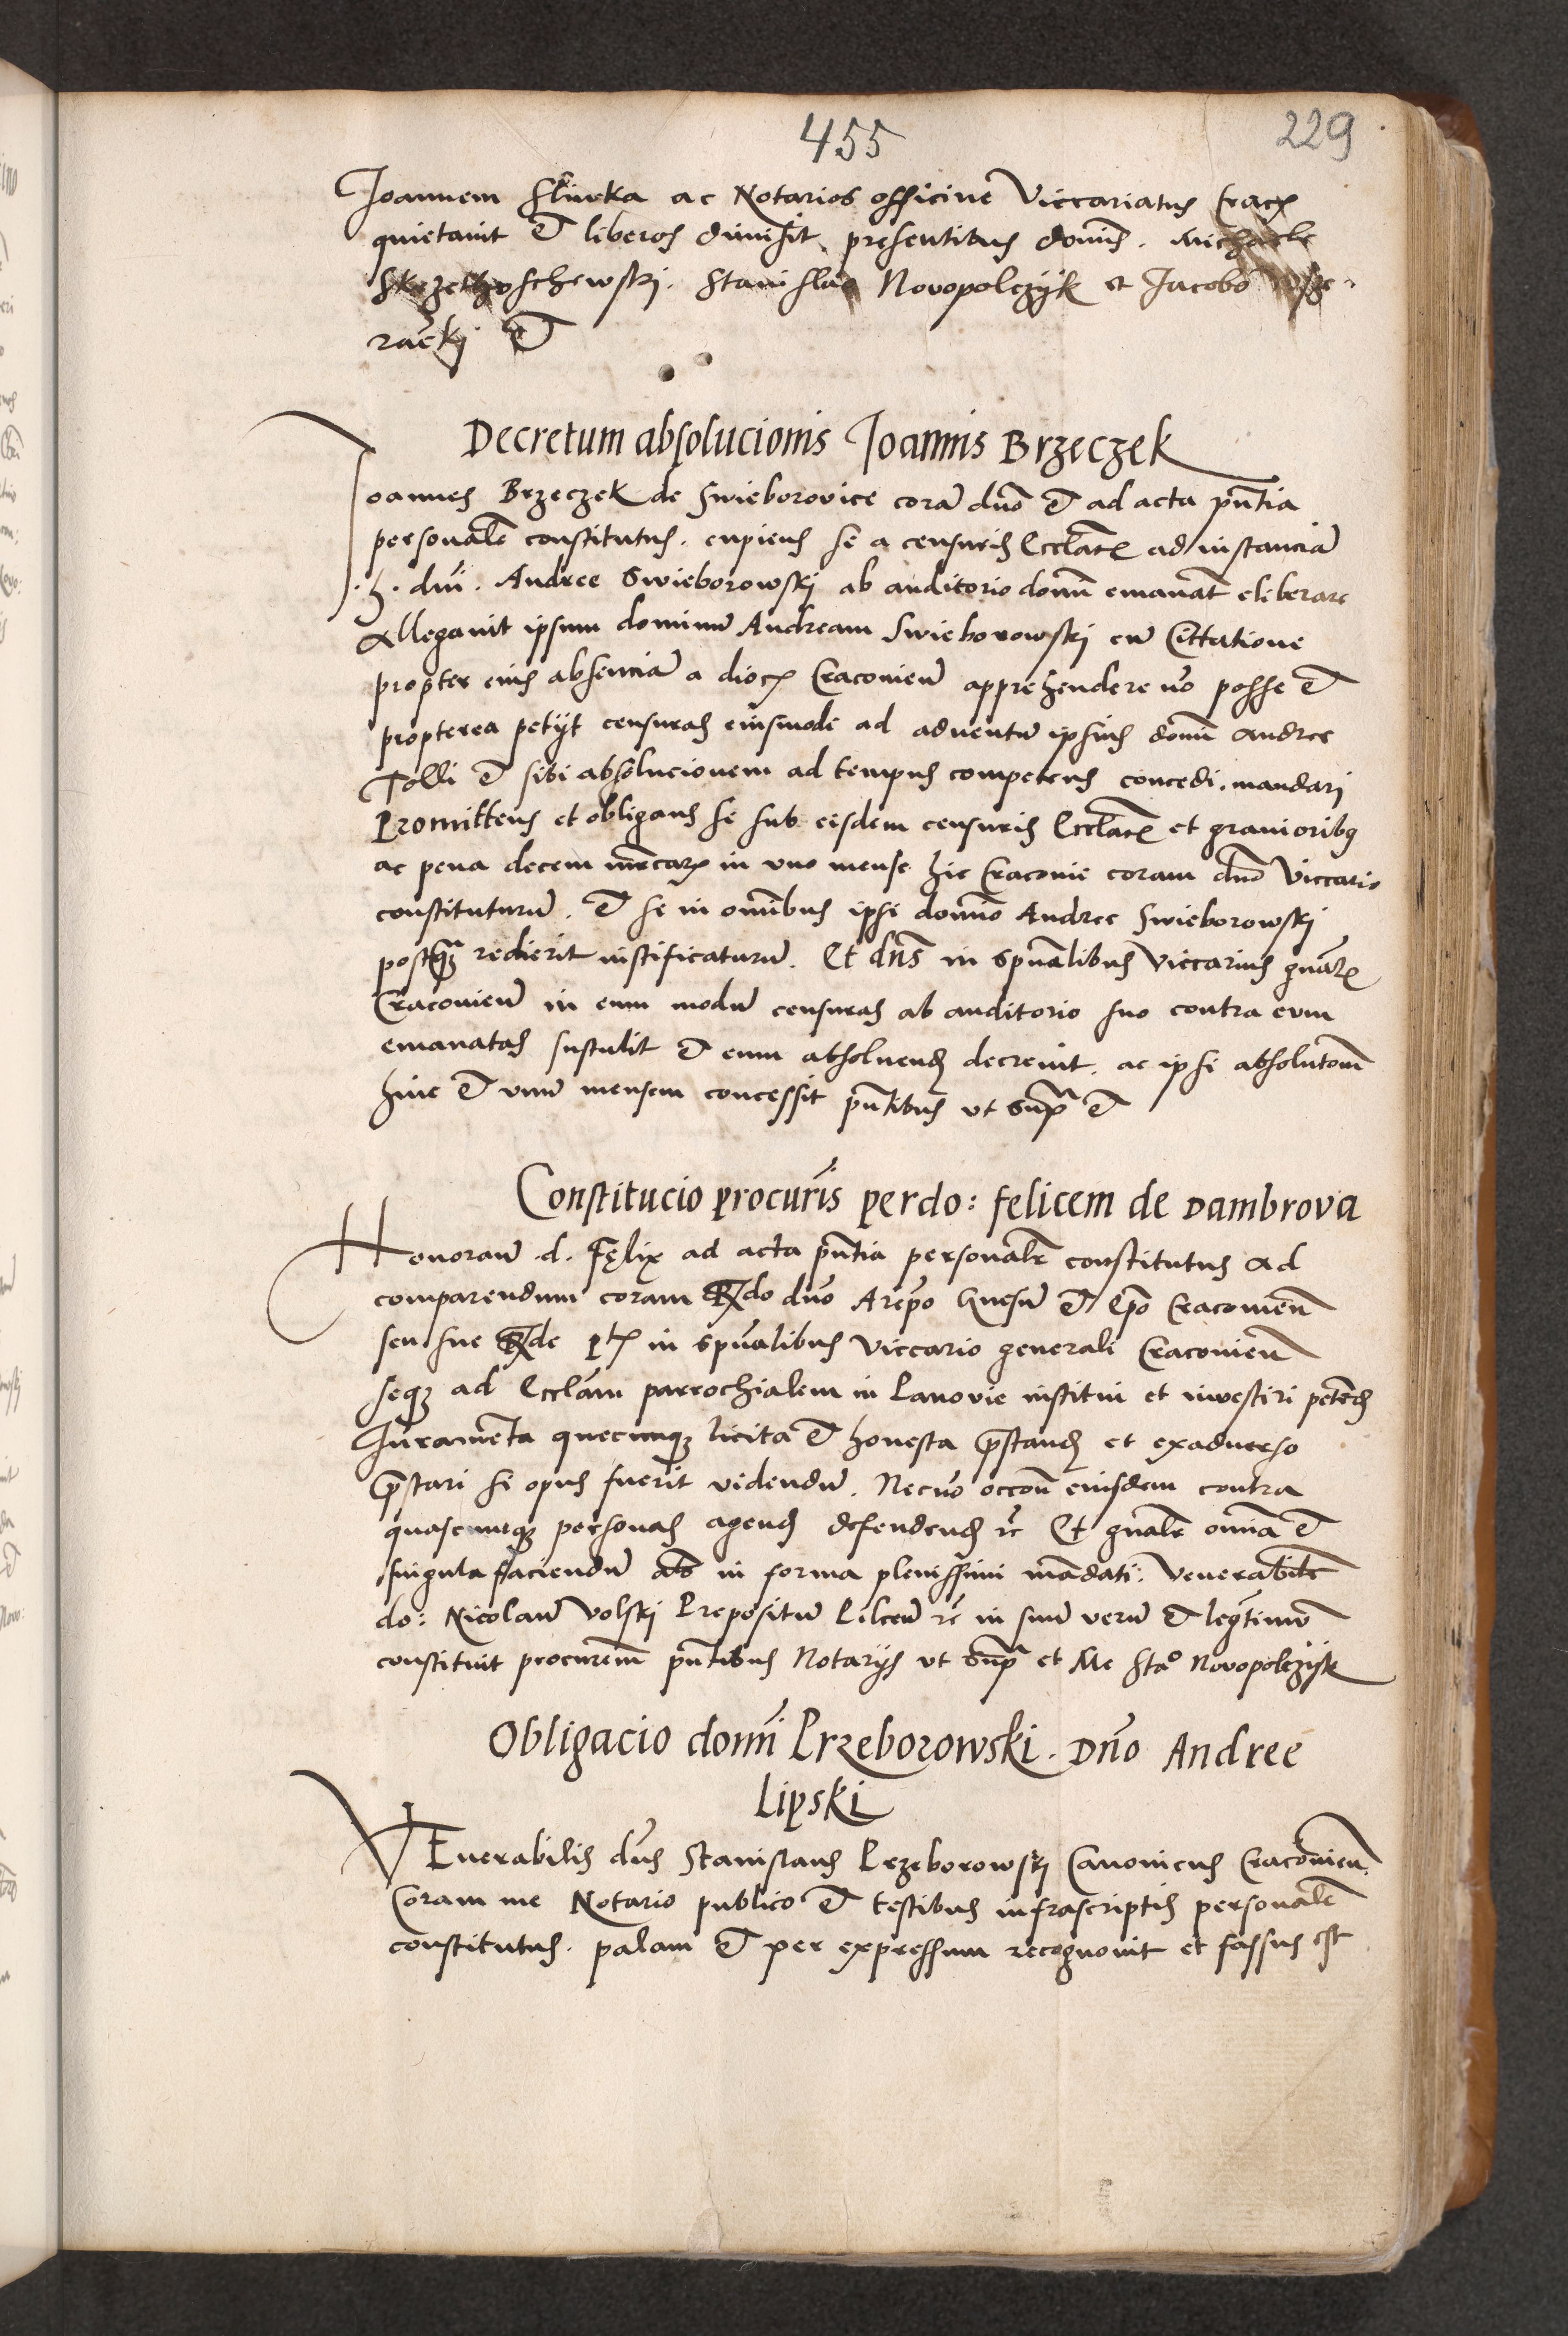 455
229
Joannem Slivka ac Notarios officine Viccariatus Crac
quietavit et liberos dimisit presentibus domis. Michaele
Stanislao Novopolczÿk et Jacobo
Decretum absolucionis Joannis Brzeczek
Joannes Brzeczek de Swieborovice corā dnō et ad acta pn̄tia
personalr̄ constitutus. cupiens se a censuris Ecclar̄ ad instanciā
dnī. Andree Swieborowski ab auditorio domī emanat̄ eliberare
Allegavit ipsum dominū Andream Swieborowski cū Cittatione
propter eius absenciā a dioc Cracovien̄ apprehendere nō posse et
propterea petÿt censuras eiusmodi ad adventū ipsius domī Andree
Tolli et sibi absolucionem ad tempus competens concedi. mandari
Promittens et obligans se sub eisdem censuris Ecclar̄ et gravioribꝫ
ac pena decem mr̄car in uno mense hic Cracovie coram dn̄o Viccario
constituturū. et se in omībus ipsi domīo Andree Swieborowski
postqꝫ redierit iustificaturū. Et dn̄s in spūalibus Viccarius gn̄ar
Cracovien̄ in eum modū censuras ab auditorio suo contra eum
emanatas sustulit et eum absolvend decrevit. ac ipsi absolutom̄
hinc et unū mensem concessit pn̄tibus ut supr̄a et
Constitucio procur̄is per do: felicem de Dambrova
Honoran̄ .d. Fęlix ad acta pn̄tia personalr̄ constitutus ad
comparendum coram Rdo dn̄o Arēpo Gnesn̄ et Ep̄o Cracovien̄
seu sue Rde pt in spūalibus Viccario generali Cracovien̄
seqꝫ ad Ecclām parrochialem in Lanovie institui et investiri petēd
Juramēta quecumqꝫ licita et honesta p̄stand et ex adverso
p̄stari si opus fuerit videndū. Necnō occōn̄ eiusdem contra
quascumqꝫ personas agend defendend rc̄ Et gn̄alr̄ omīa et
singula faciendū in forma plenissimi mādati. Venerabilē
do: Nicolaū Volski Prepositū Pilcen̄ rc̄ in suū verū et leḡtimū
constituit procurem̄ pn̄tibus Notarÿs ut supr̄a et Me Sta° Novopolczÿk
Obligacio domī Przeborowski. Dn̄o Andree
Lipski
VEnerabilis dn̄s Stanislaus Przeborowski Canonicus Cracovien̄.
Coram me Notario publico et testibus infrascriptis personalr̄
constitutus. palam et per expressum recognovit et fassus est